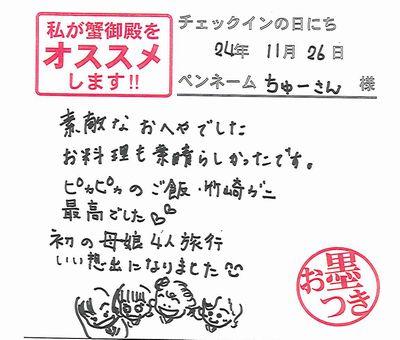 私が蟹御殿を
オススメ
します!!
チェックインの日にち
24年 11月 26日
ペンネーム ちゅーさん 様
素敵な おへやでした
お料理も素晴らしかったです。
ピカピカの ご飯・竹崎ガニ
最高でした♡♡
初の母娘4人旅行
いい想出になりました
お墨つき